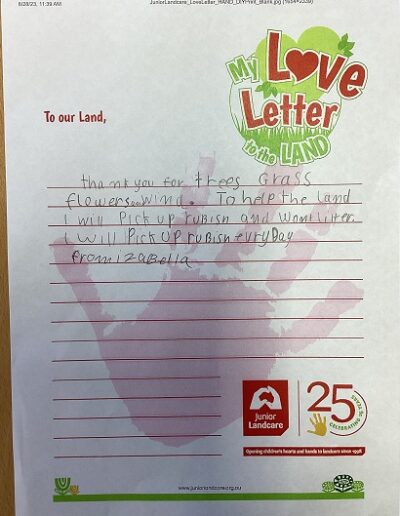 8/28/23, 11:39 AM
JuniorLandcare_LoveLetter_HAND_DIYPrint_Blank.jpg (1654×2339)
My Love
Letter
to the LAND
To our Land,
thank you for trees Grass
flowers..wind. To help the land
I will Pick up rubish and wont litter
I will Pick up rubish evryDay
From izabella
Junior
Landcare
25
CELEBRATING 25 YEARS
Opening children's hearts and hands to landcare since 1998
www.juniorlandcare.org.au